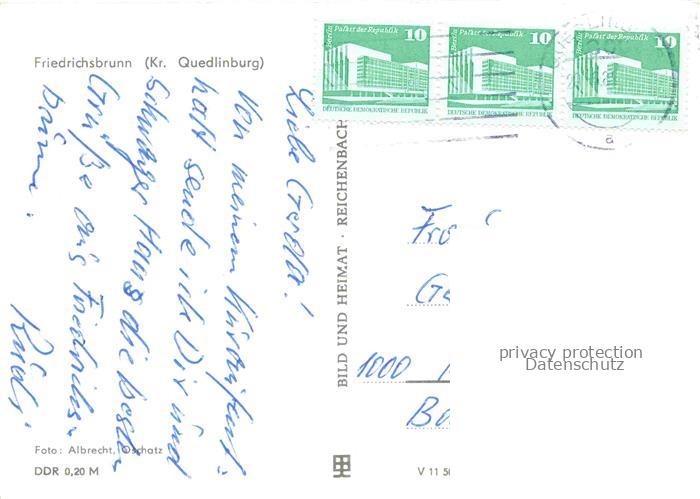 Friedrichsbrunn (Kr. Quedlinburg)
Liebe Gerda!
Von meinem Kuraufent-
halt sende ich Dir und
Schwager Hans die besten
Grüße aus Friedrichs-
brunn.
Rudi.
Foto: Albrecht, Oschatz
DDR 0,20 M
BILD UND HEIMAT · REICHENBACH
V 11 50
Berlin Palast der Republik 10
DEUTSCHE DEMOKRATISCHE REPUBLIK
Berlin Palast der Republik 10
DEUTSCHE DEMOKRATISCHE REPUBLIK
Berlin Palast der Republik 10
DEUTSCHE DEMOKRATISCHE REPUBLIK
a
Fra
Ge
1000
Ba
privacy protection
Datenschutz